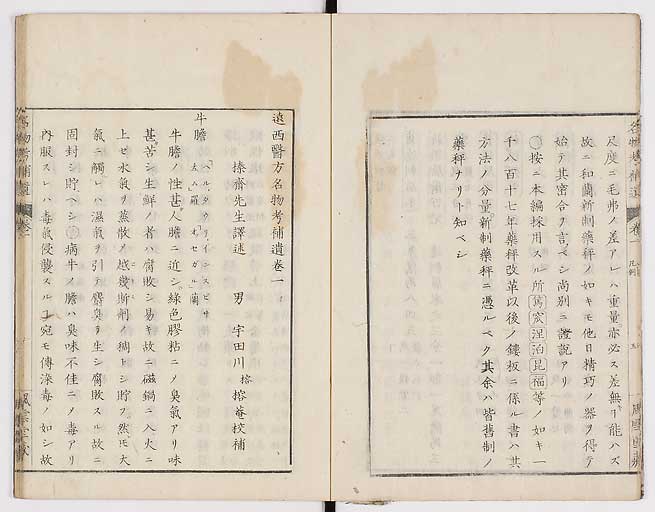 尺度ニ毛弗ノ差アレハ重量亦必ス差無ヿ能ハズ
故ニ和蘭新制藥秤ノ如キモ他日精巧ノ器ヲ得テ
始テ其密合ヲ言ベシ尚別ニ證説アリ
按ニ本編採用スル所篤宻涅泊昆福等ノ如キ一
千八百十七年藥秤改革以後ノ鏤板ニ係ル書ハ其
方法ノ分量新制藥秤ニ憑ルベク其余ハ皆舊制ノ
藥秤ナリト知ベシ
遠西醫方名物考補遺卷一
榛齋先生譯述 男 宇田川榕 榕菴校補
牛膽
牛膽ノ性甚人膽ニ近シ綠色膠粘ニノ臭氣アリ味
甚苦シ生鮮ノ者ハ腐敗シ易キ故ニ磁鍋ニ入火ニ
上セ水氣ヲ蒸散メ越幾斯剤ノ稠トシ貯フ然モ大
氣ニ觸レハ濕氣ヲ引テ黴臭ヲ生シ腐敗スル故ニ
固封シ貯ベシ病牛ノ膽ハ臭味不佳ニノ毒アリ
內服スレハ毒氣侵襲スルヿ宛モ傳染毒ノ如シ故